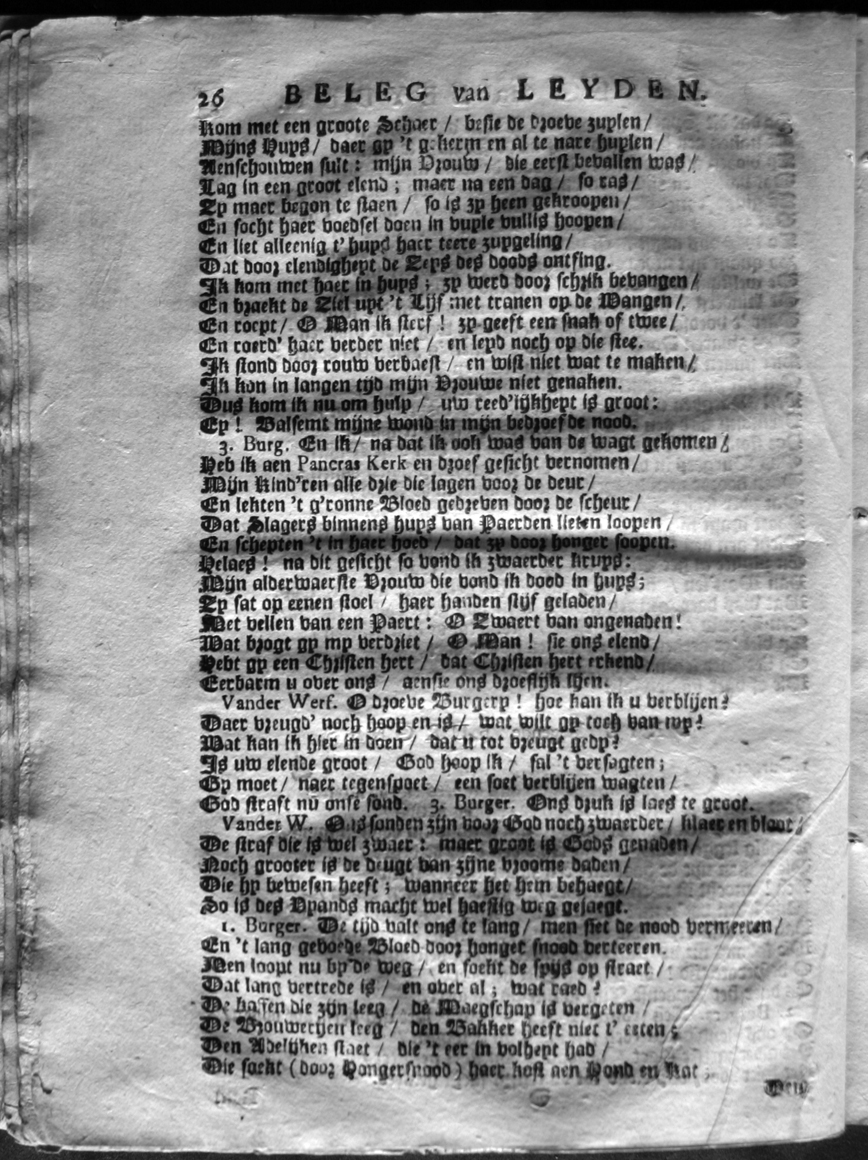 26 BELEG van LEYDEN.
Kom met een groote Schaer / besie de droeve zuylen /
Mijns Huys / daer gy 't gekerm en al te nare huylen /
Aenschouwen sult : mijn Vrouw / die eerst bevallen was /
Lag in een groot elend ; maer na een dag / so ras /
Zy maer begon te staen / so is zy heen gekroopen /
En socht haer voedsel doen in vuyle vullis hoopen /
En liet alleenig t' huys haer teere zuygeling /
Dat door elendigheyt de Zeys des doods ontfing.
Ik kom met haer in huys ; zy werd door schrik bevangen /
En braekt de Ziel uyt 't Lijf met tranen op de Wangen /
En roept / O Man ik sterf ! zy geeft een snak of twee /
En roerd' haer verder niet / en leyd noch op die stee.
Ik stond door rouw verbaest / en wist niet wat te maken /
Ik kon in langen tijd mijn Vrouwe niet genaken.
Dus kom ik nu om hulp / uw reed'ijkheyt is groot :
Ey ! Balsemt mijne wond in mijn bedroefde nood.
3. Burg. En ik / na dat ik ook was van de wagt gekomen /
Heb ik aen Pancras Kerk en droef gesicht vernomen /
Mijn Kind'ren alle drie die lagen voor de deur /
En lekten 't g'ronne Bloed gedreven door de scheur /
Dat Slagers binnens huys van Paerden lieten loopen /
En schepten 't in haer hoed / dat zy door honger soopen.
Helaes ! na dit gesicht so vond ik zwaerder kruys :
Mijn alderwaerste Vrouw die vond ik dood in huys ;
Zy sat op eenen stoel / haer handen stijf geladen /
Met vellen van een Paert : O Zwaert van ongenaden !
Wat brogt gy my verdriet / O Man ! sie ons elend /
Hebt gy een Christen hert / dat Christen hert erkend /
Eerbarm u over ons / aensie ons droeflijk lijen.
Vander Werf. O droeve Burgery ! hoe kan ik u verblijen ?
Daer vreugd' noch hoop en is / wat wilt gy toch van my ?
Wat kan ik hier in doen / dat u tot vreugt gedy ?
Is uw elende groot / God hoop ik / sal 't versagten ;
Gy moet / naer tegenspoet / een soet verblijen wagten /
God straft nu onse sond. 3. Burger. Ons druk is laes te groot.
Vander W. Ons sonden zijn voor God noch zwaerder / klaer en bloot ;
De straf die is wel zwaer : maer groot is Gods genaden /
Noch grooter is de deugt van zijne vroome daden /
Die hy bewesen heeft ; wanneer het hem behaegt /
So is des Vyands macht wel haestig weg gejaegt.
1. Burger. De tijd valt ons te lang / men siet de nood vermeeren /
En 't lang gevoede Bloed door honger snood verteeren.
Men loopt nu by de weg / en soekt de spijs op straet /
Dat lang vertrede is / en over al ; wat raed ?
De hassen die zijn leeg / de Maegschap is vergeten /
De Brouweryen leeg / den Bakker heeft niet t' eeten ;
Den Adelijken staet / die 't eer in volheyt had /
Die soekt (door Hongersnood) haer kost aen Hond en Kat ;